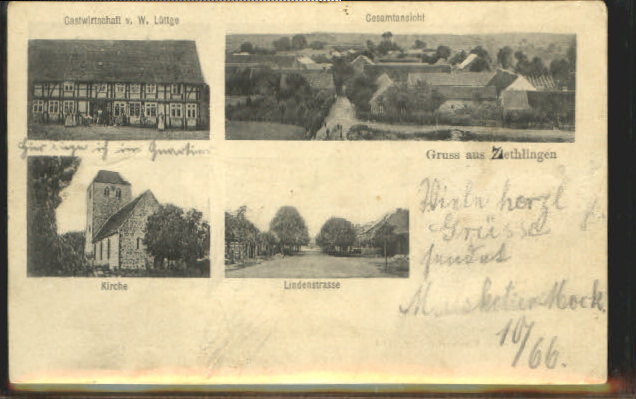 Gastwirtschaft v. W. Lüttge
Gesamtansicht
Hier liege ich im Quartier
Gruss aus Zethlingen
Viele herzl
Grüsse
sendet
Musketier Mock.
10/66.
Kirche
Lindenstrasse